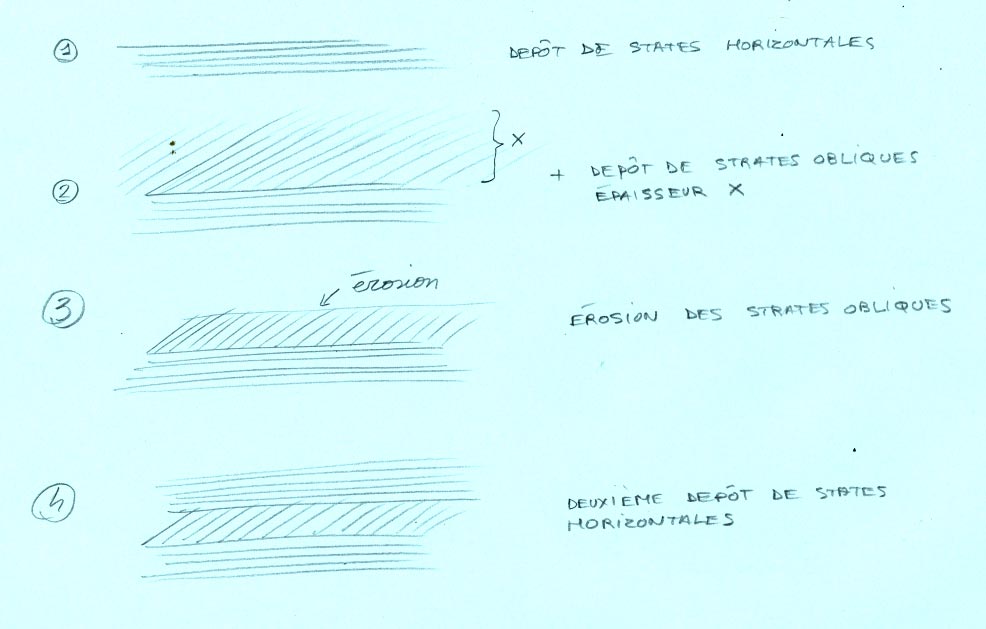 1 DEPÔT DE STATES HORIZONTALES
X
2 + DEPÔT DE STRATES OBLIQUES
ÉPAISSEUR X
érosion
3 ÉROSION DES STRATES OBLIQUES
4 DEUXIÈME DEPÔT DE STATES
HORIZONTALES